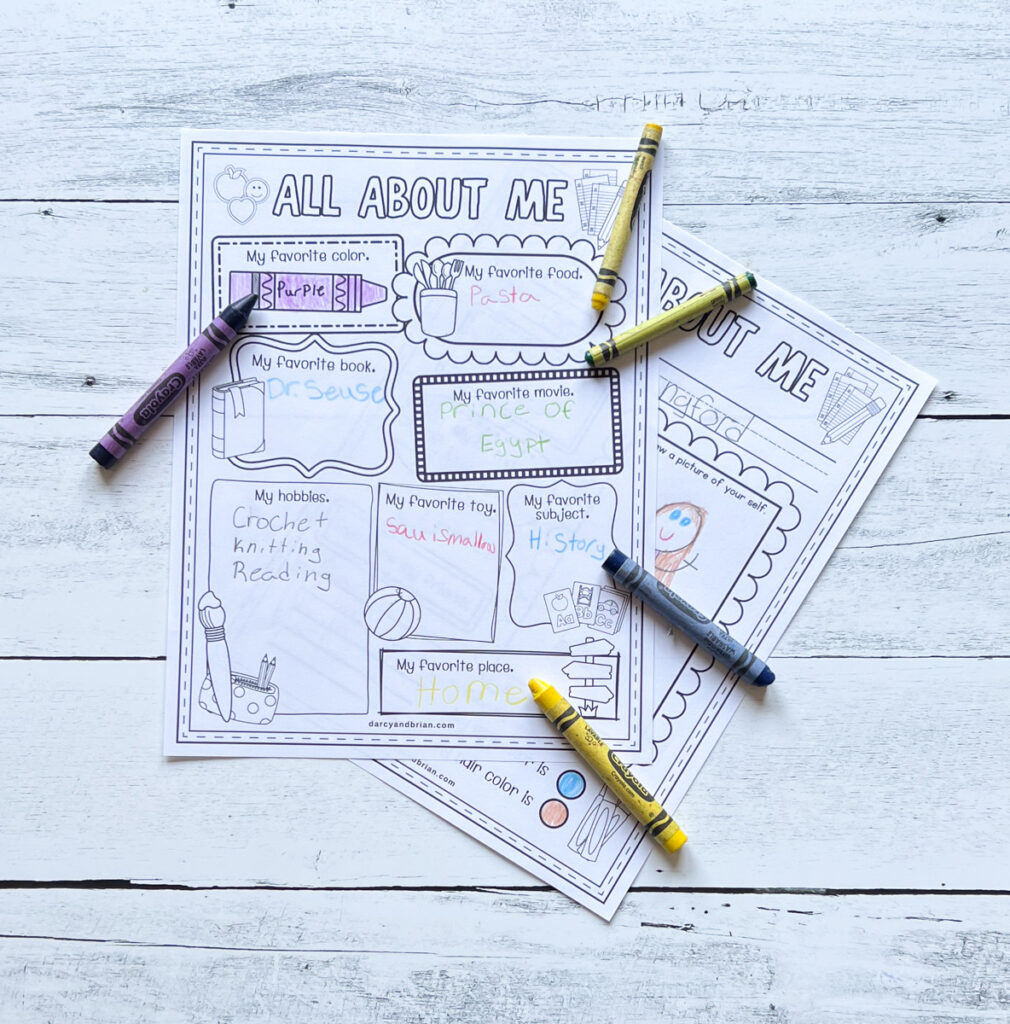 ALL ABOUT ME
My favorite color.
Purple
My favorite food.
Pasta
My favorite book.
Dr. Seuse
My favorite movie.
Prince of
Egypt
My hobbies.
Crochet
knitting
Reading
My favorite toy.
Squismallow
My favorite
subject.
History
Aa
Cc
My favorite place.
Home
darcyandbrian.com
ABOUT ME
ngford
w a picture of your self.
is
hair color is
dbrian.com
Crayola
Crayola
Crayola.com